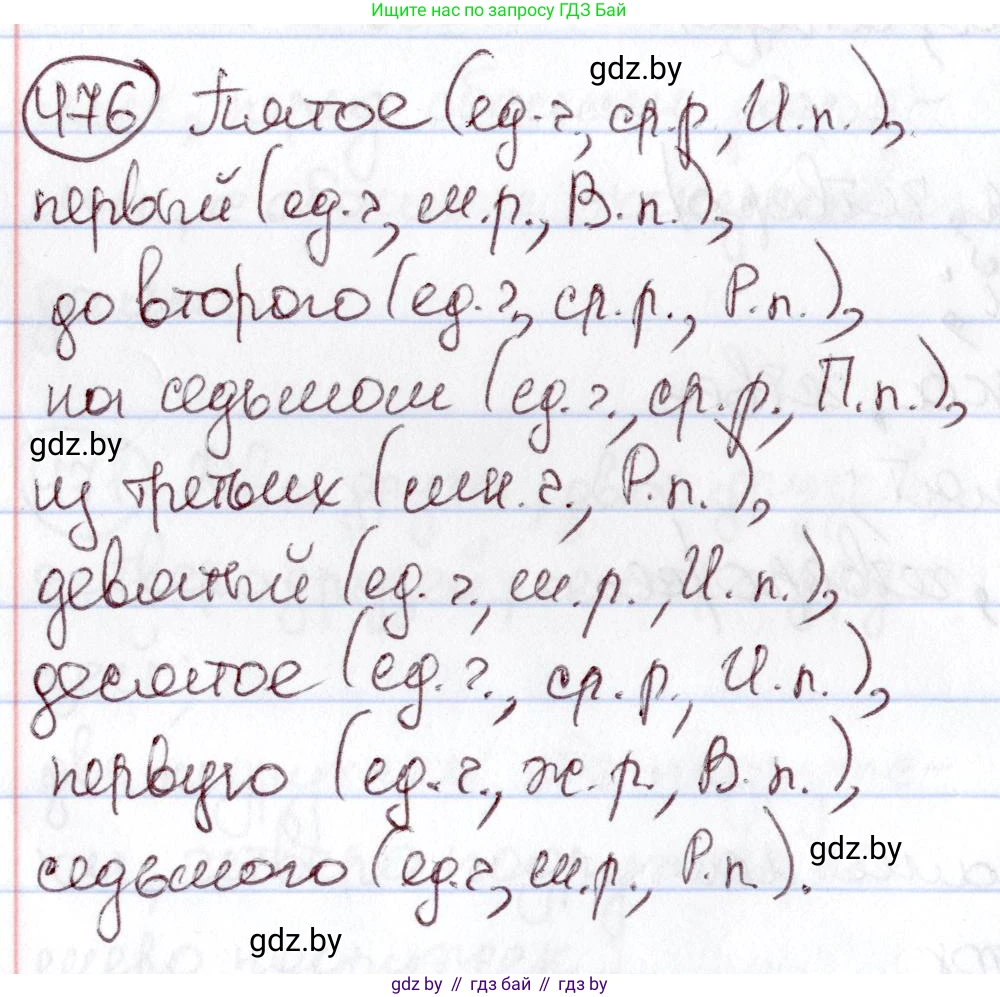 Ищите нас по запросу ГДЗ Бай
gdz.by
476 Пятое (ед.ч., ср.р., И.п.),
первый (ед.ч., м.р., В.п.),
до второго (ед.ч., ср.р., Р.п.),
на седьмом (ед.ч., ср.р., П.п.),
gdz.by
из третьих (мн.ч., Р.п.),
девятый (ед.ч., м.р., И.п.),
десятое (ед.ч., ср.р., И.п.),
первую (ед.ч., ж.р., В.п.),
gdz.by
седьмого (ед.ч., м.р., Р.п.).
gdz.by
gdz.by // гдз бай // gdz.by